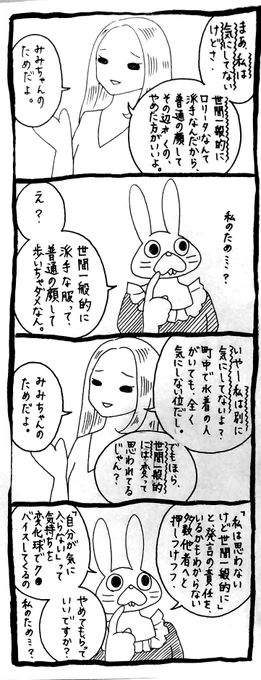 まあ、私は
気にしてない
けどさ、
世間一般的に
ロリータなんて
派手なんだから、
その辺歩くの、
普通の顔して
やめた方がいいよ。
みみちゃんの
ためだよ。
私のため…?
え?
世間一般的に
派手な服って、
普通の顔して
歩いちゃダメなん。
いや、私は別に
気にしてないよ?
町中で水着の人
がいても、全く
気にしない位だし。
でもほら、
世間一般的
には変って
思われてる
じゃん?
みみちゃんの
ためだよ。
「私は思わない
けど世間一般的に」
と、発言の責任を、
いるかもわからない
多数他者へ
押しつけつつ、
「自分が気に
入らない」って
気持ちを
変化球でアド
バイスしてくるの
やめてもらって
いいですか?
私のため…?